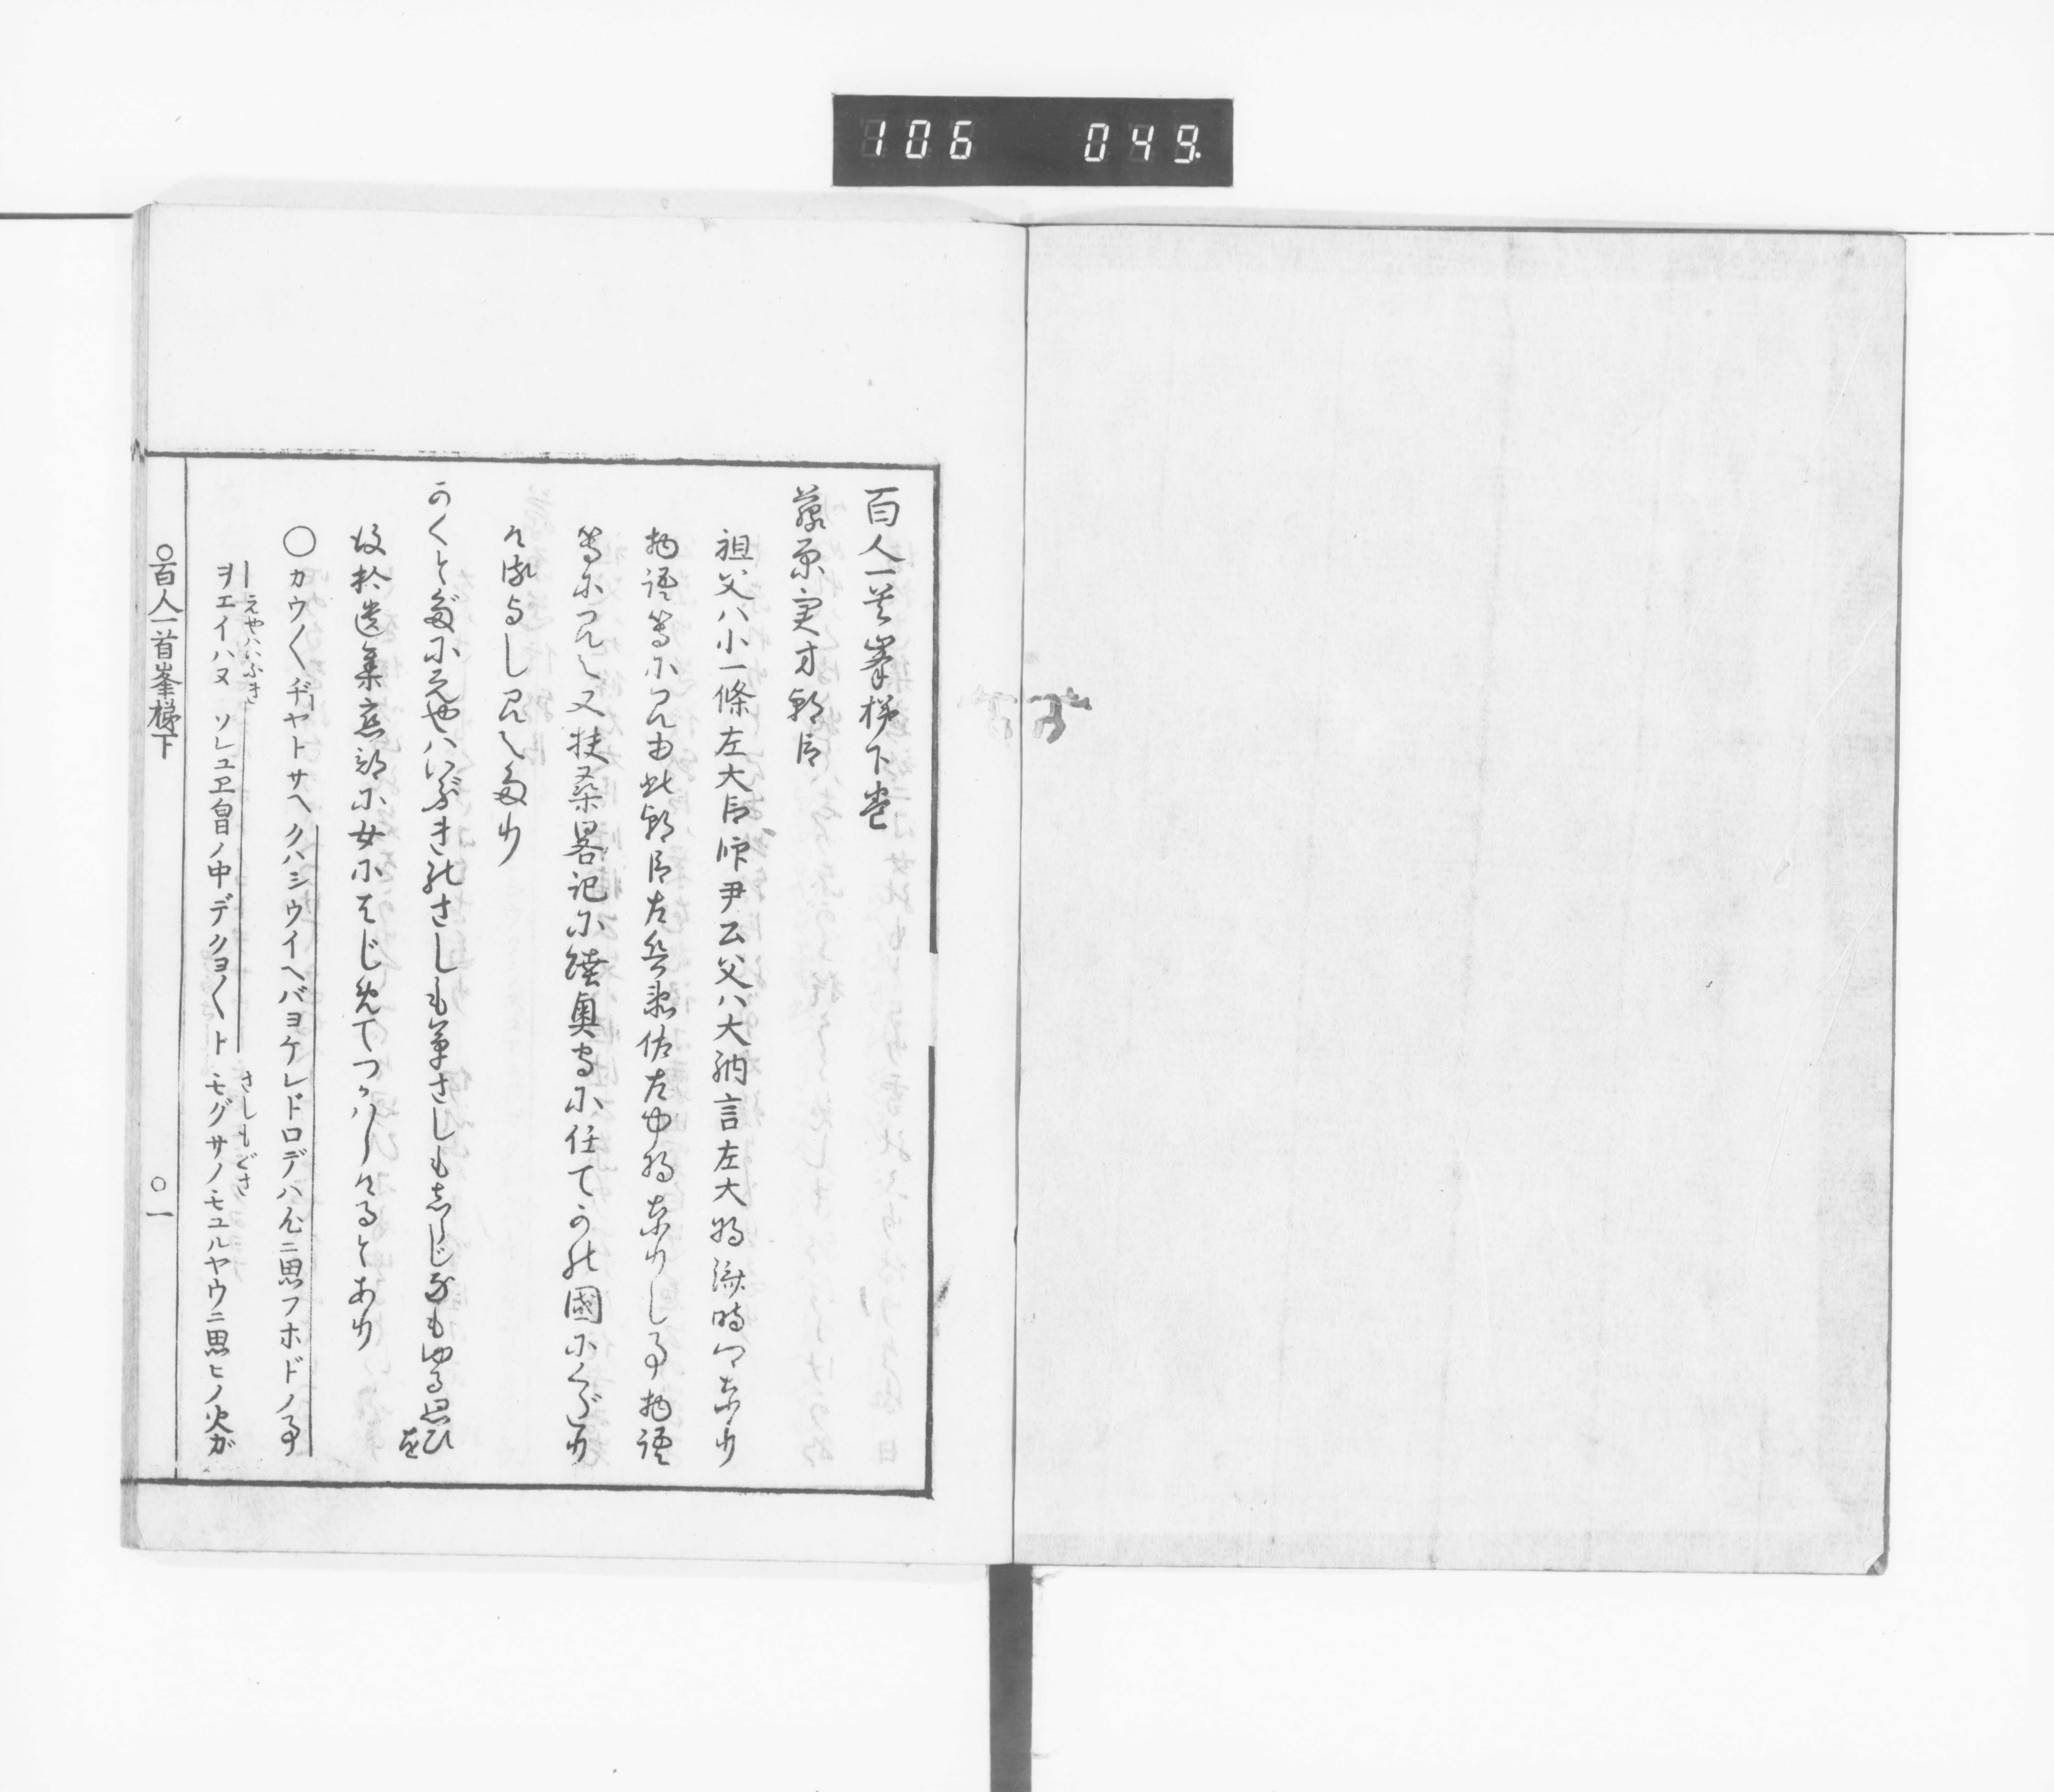 106 049
百人一首峯梯下巻
藤原実方朝臣
祖父ハ小一條左大臣師尹公父ハ大納言左大将済時卿なり
物語等に見由此朝臣左兵衛佐左中将なりし事物語
等に見え又扶桑畧記に陸奥守に任てかの國にくだり
けるよし見えたり
かくとだにえやハいぶきのさしも草さしもしらじなもゆる思ひを
後拾遺集恋部に女にはじめてつかハしけるとあり
○カウ〳〵ヂヤトサヘクハシウイヘバヨケレドロデハ心ニ思フホドノ事
えやハいぶき
さしもぐさ
ヲエイハヌ ソレユヱ自ノ中デクヨ〳〵トモグサノモユルヤウニ思ヒノ火ガ
○百人一首峯梯下
○一